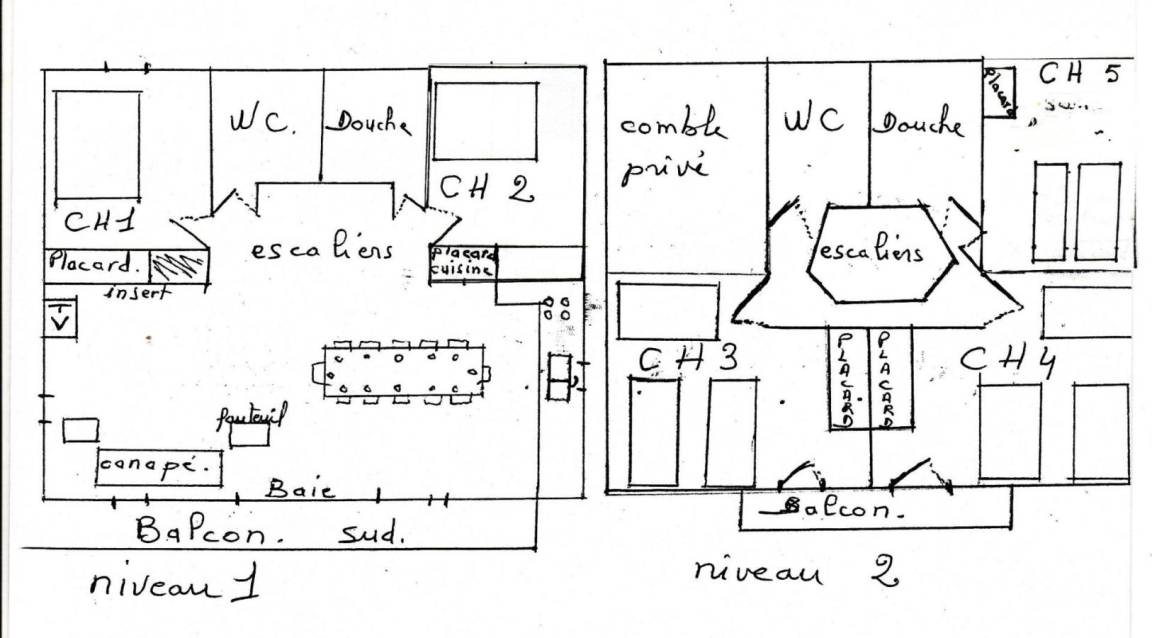 WC.
Douche
CH1
CH 2
escaliers
Placard.
insert
placard
cuisine
TV
fauteuil
canapé.
Baie
Balcon. sud.
niveau 1
comble
privé
WC
Douche
Placard
CH 5
escaliers
CH3
CH4
PLACARD
PLACARD
Balcon.
niveau 2